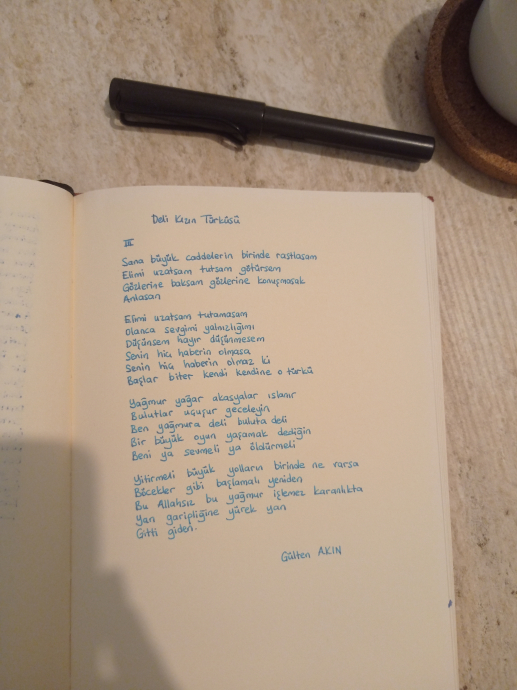 Deli Kızın Türküsü
III
Sana büyük caddelerin birinde rastlasam
Elimi uzatsam tutsam götürsem
Gözlerine baksam gözlerine konuşmasak
Anlasan
Elimi uzatsam tutamasam
Olanca sevgimi yalnızlığımı
Düşünsem hayır düşünmesem
Senin hiç haberin olmasa
Senin hiç haberin olmaz ki
Başlar biter kendi kendine o türkü
Yağmur yağar akasyalar ıslanır
Bulutlar uçuşur geceleyin
Ben yağmura deli buluta deli
Bir büyük oyun yaşamak dediğin
Beni ya sevmeli ya öldürmeli
Yitirmeli büyük yolların birinde ne varsa
Böcekler gibi başlamalı yeniden
Bu Allahsız bu yağmur işlemez karanlıkta
Yan garipliğine yürek yan
Gitti giden.
Gülten AKIN